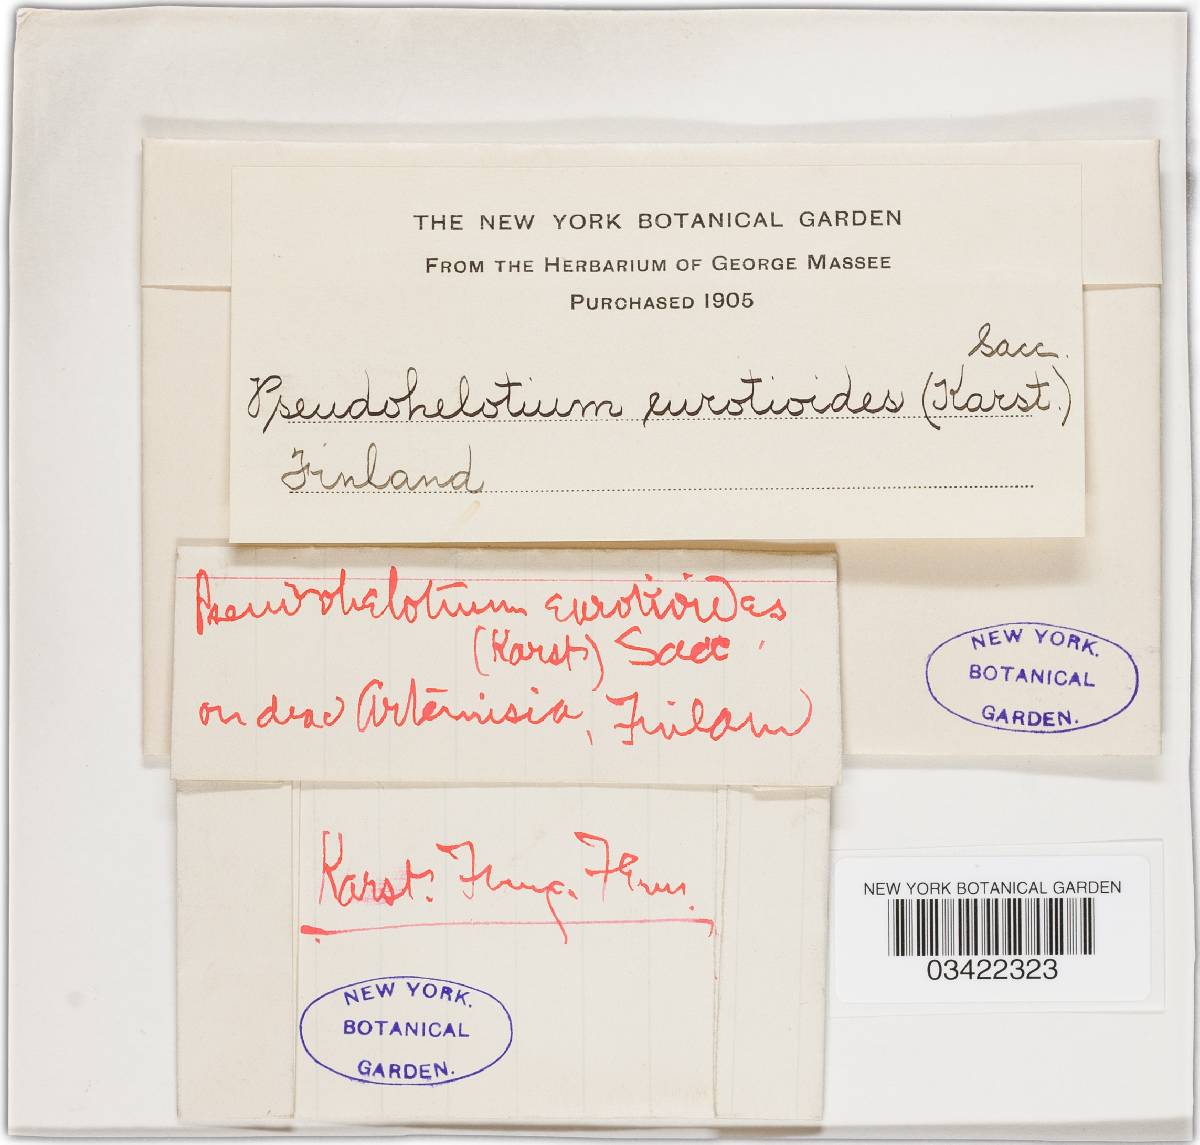 THE NEW YORK BOTANICAL GARDEN
FROM THE HERBARIUM OF GEORGE MASSEE
PURCHASED 1905
Sacc.
Pseudohelotium eurotioides (Karst.)
Finland
Pseudohelotium eurotioides
(Karst) Sacc.
on dead Artemisia, Finland
NEW YORK.
BOTANICAL
GARDEN.
Karst. Fung. Fenn.
NEW YORK BOTANICAL GARDEN
03422323
NEW YORK.
BOTANICAL
GARDEN.